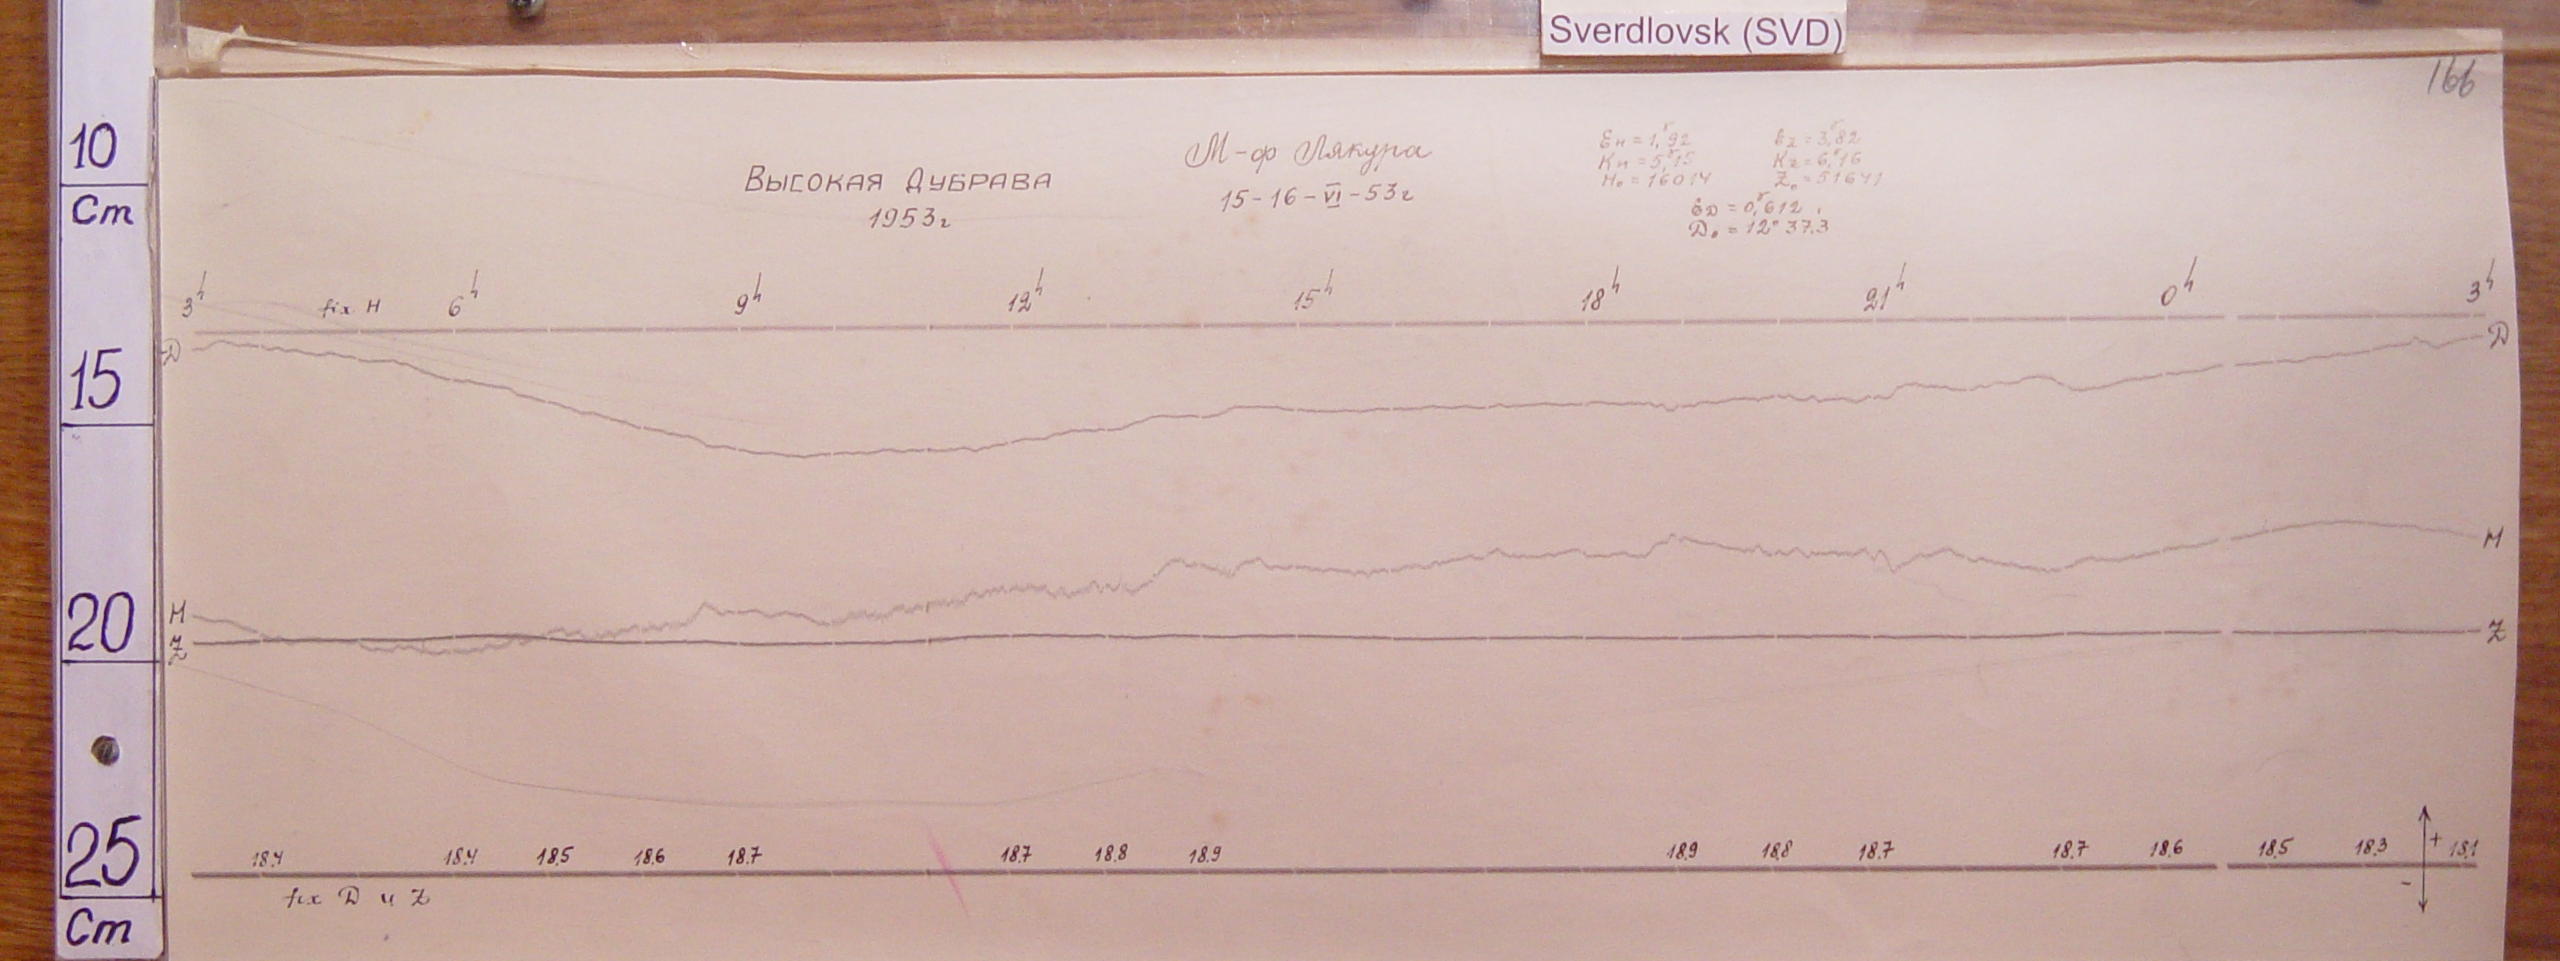 Sverdlovsk (SVD)
166
10
Cm
15
20
25
Cm
Высокая Дубрава
1953г
М-ф Лякура
15-16-VI-53г
Ен = 1,γ92
Кн = 5,γ15
Н₀ = 16014
Еz = 3,γ82
Кz = 6,γ16
Z₀ = 51641
ЕD = 0,γ612
D₀ = 12° 37.3
3h fix H 6h 9h 12h 15h 18h 21h 0h 3h
D D
H H
Z Z
18.4 18.4 18.5 18.6 18.7 18.7 18.8 18.9 18.9 18.8 18.7 18.7 18.6 18.5 18.3 + 18.1
-
fix D и Z